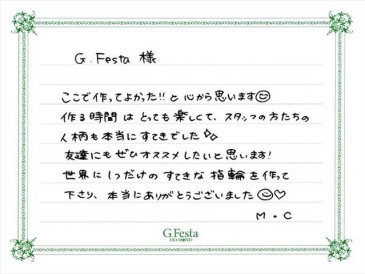 G.Festa 様
ここで作ってよかった!!と心から思います☺
作る時間はとっても楽しくて、スタッフの方たちの
人柄も本当にすてきでした✧✧
友達にもぜひオススメしたいと思います!
世界に1つだけのすてきな指輪を作って
下さり、本当にありがとうございました☺♡
M・C
G.Festa
DIAMOND